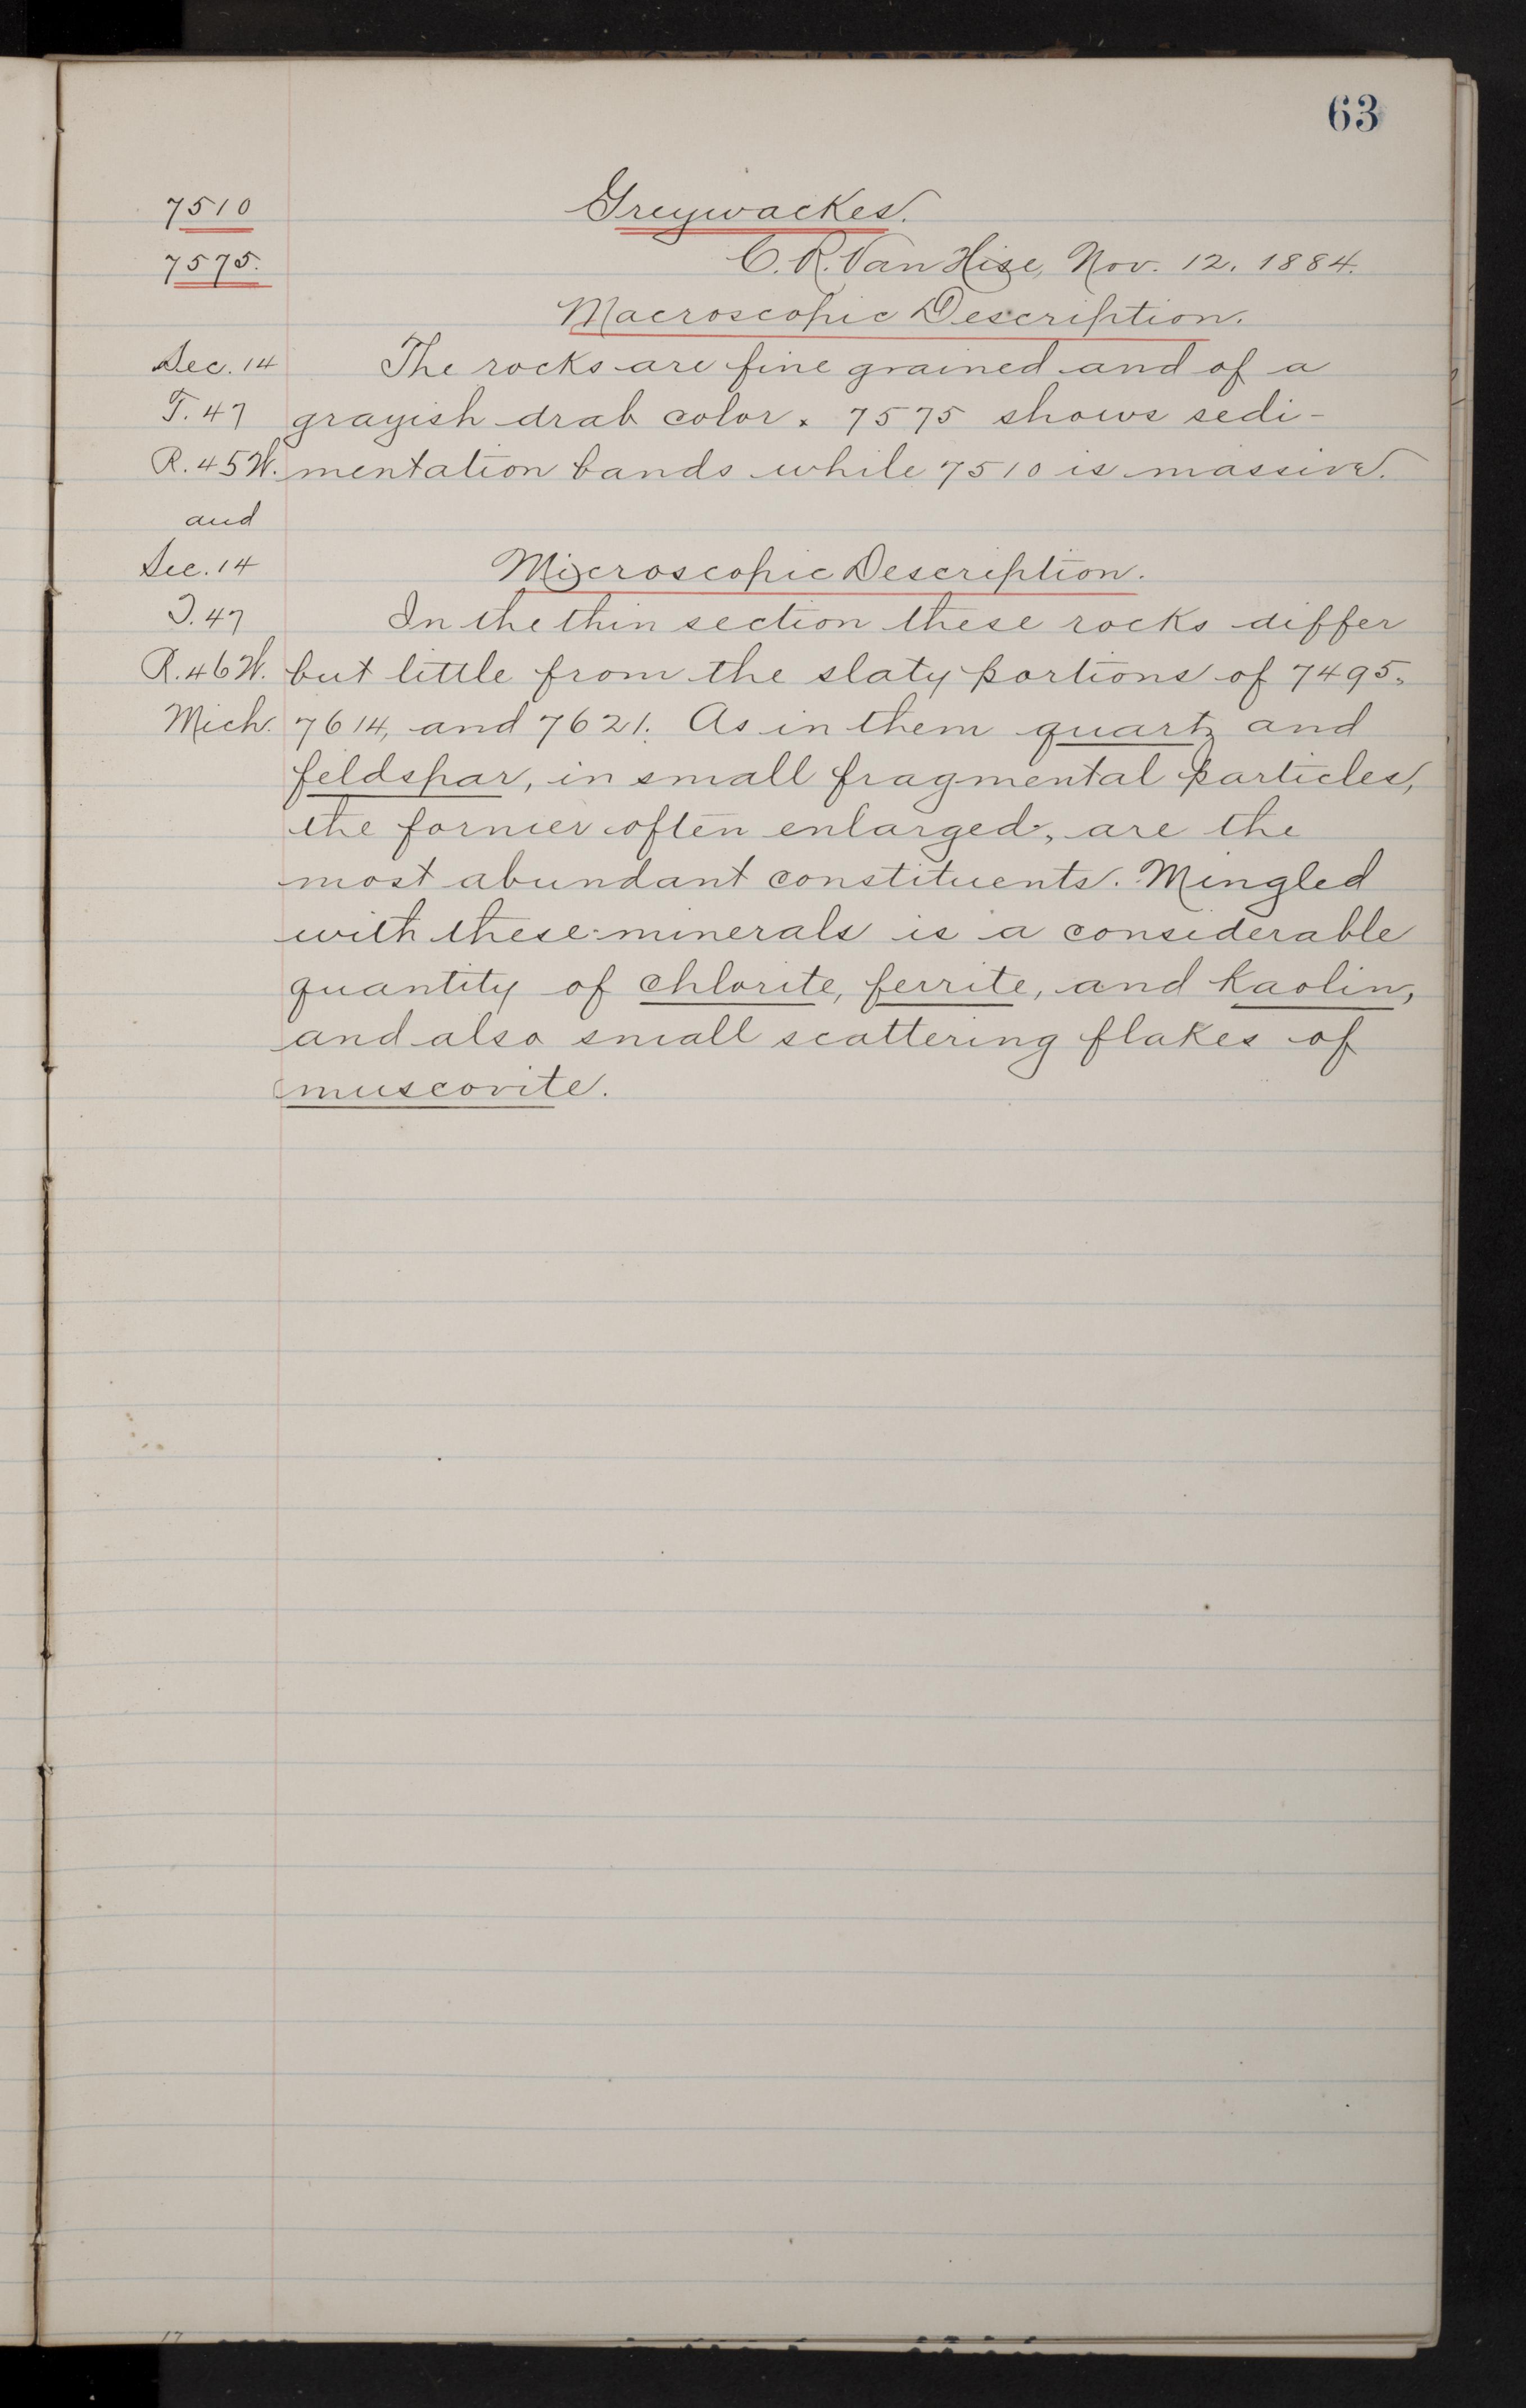 63
7510 Greywackes.
7575. C. R. Van Hise, Nov. 12, 1884.
Macroscopic Description.
Sec. 14 The rocks are fine grained and of a
T. 47 grayish drab color. 7575 shows sedi-
R. 45 W. mentation bands while 7510 is massive.
and
Sec. 14 Microscopic Description.
T. 47 In the thin section these rocks differ
R. 46 W. but little from the slaty portions of 7495,
Mich. 7614, and 7621. As in them quartz and
feldspar, in small fragmental particles,
the former often enlarged, are the
most abundant constituents. Mingled
with these minerals is a considerable
quantity of chlorite, ferrite, and kaolin,
and also small scattering flakes of
muscovite.